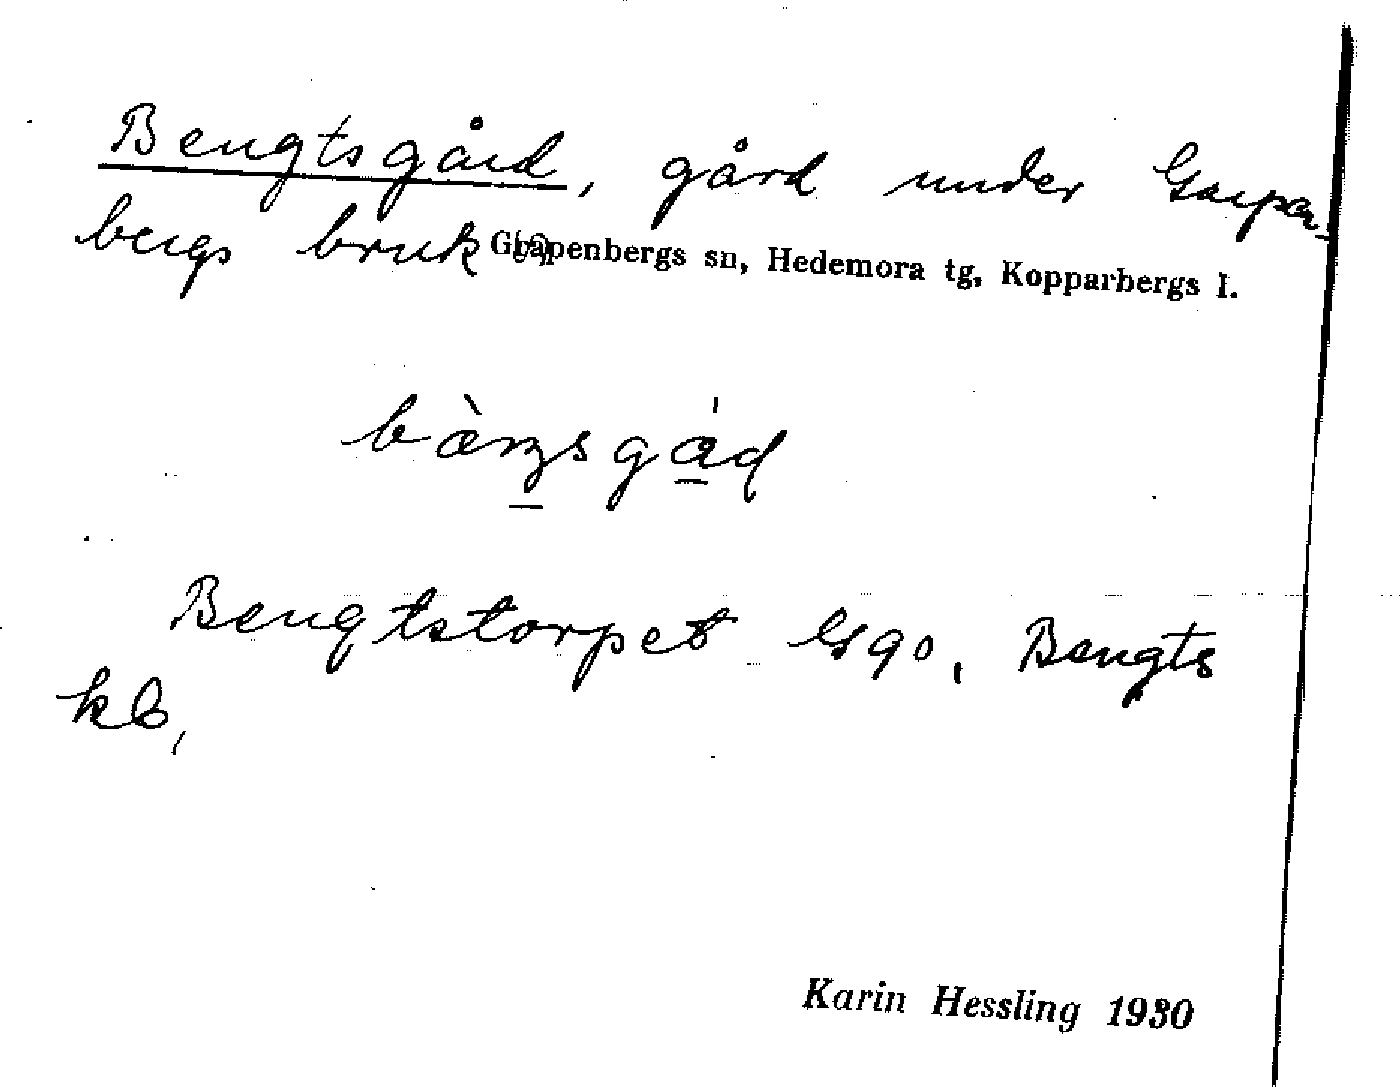 Bengtsgård, gård under Garpen-
bergs bruk
Garpenbergs sn, Hedemora tg, Kopparbergs l.
Bengtstorpet G 90, Bengts
kb,
Karin Hessling 1930